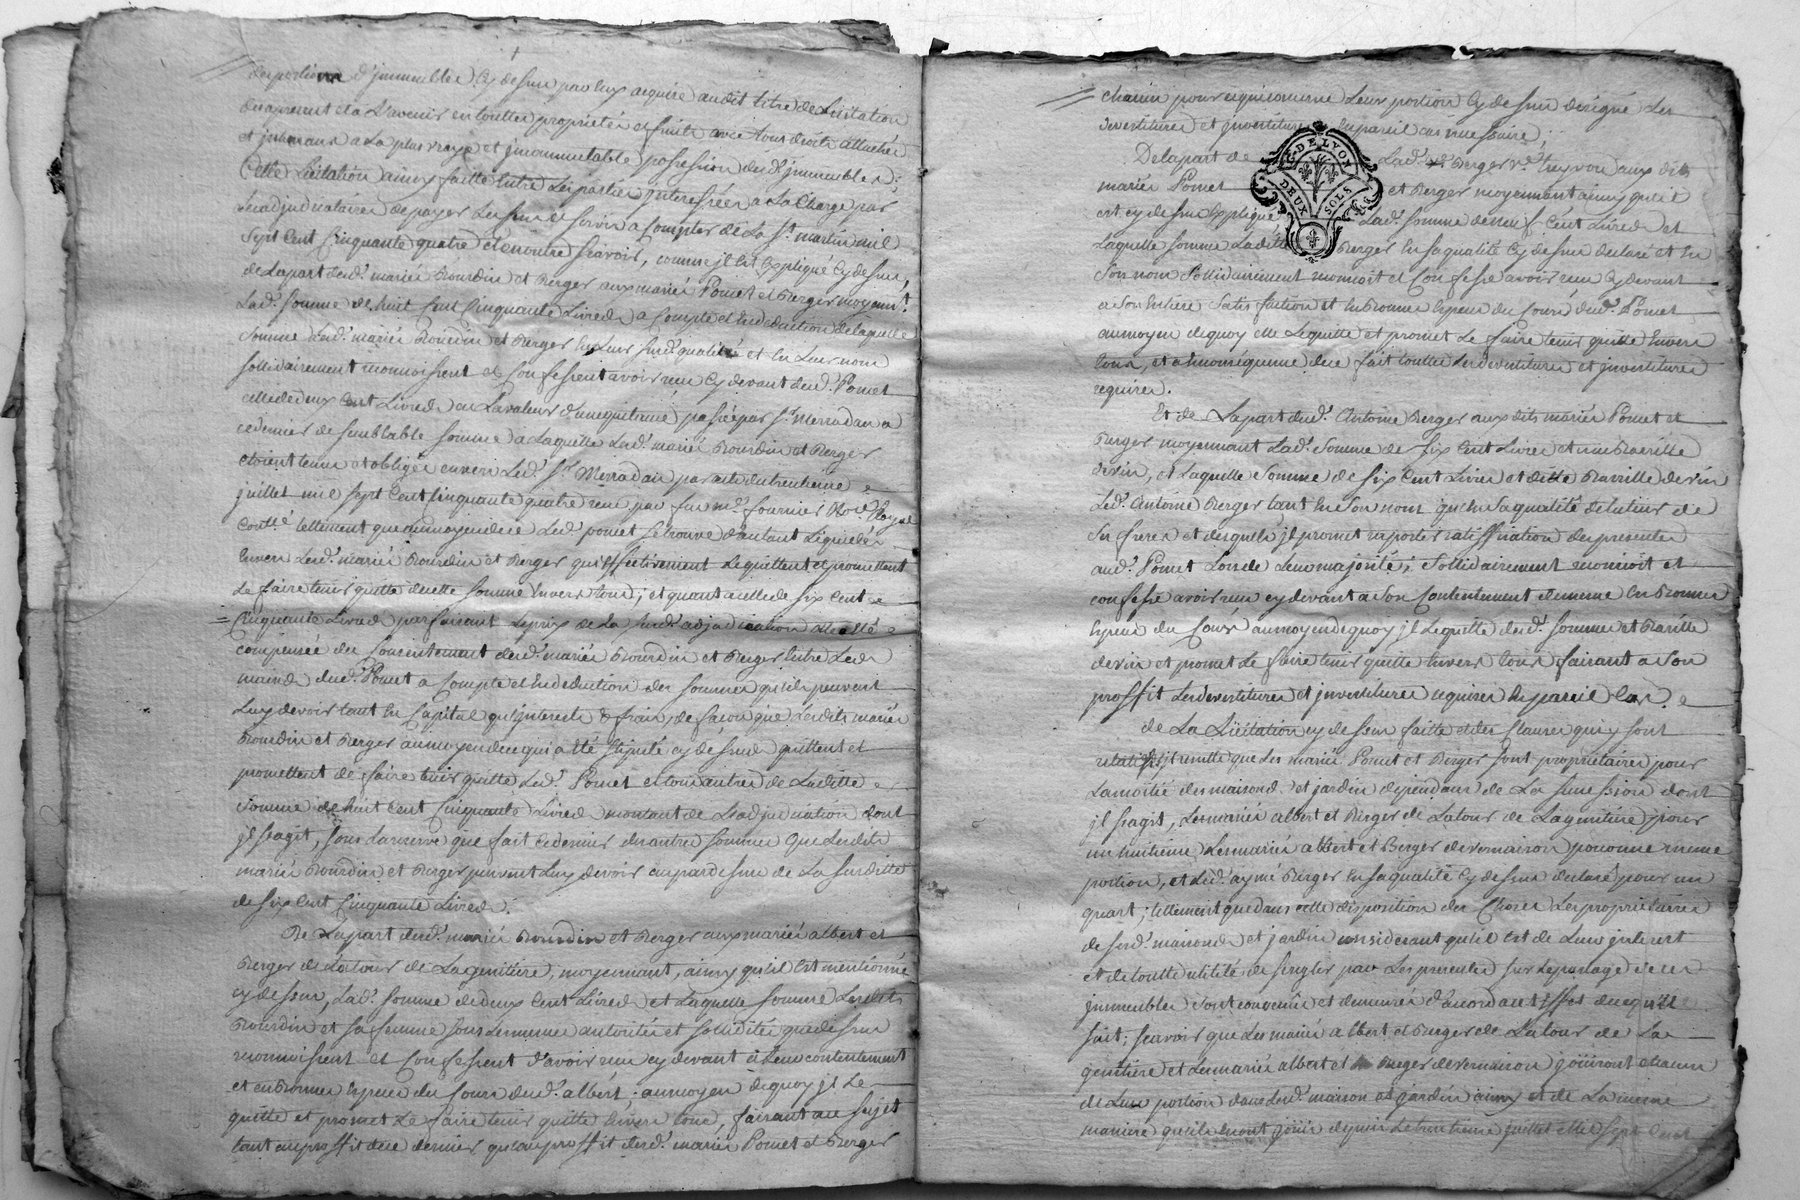 des portions d'jmmeubles cy dessus par eux acquise audit titre de Licitation
du present et a L'avenir en touttes proprietés et fruits avec tous droits attachés
et jnherans a La plus vraye et jncommutable possession desd. jmmeubles;
Cette Licitation ainsy faitte Entre Les parties jnteressées a La Charge par
Les adjudicataires de payer Les cens et servis a Compter de La St. martin mil
Sept Cent Cinquante quatre et en outre scavoir, comme jl Est Expliqué cy dessus,
de La part desd. mariés Bourdin et Berger aux mariés Pomet et Berger moyent.
Lad. somme de huit Cent Cinquante Livres a Compte et En deduction de laquelle
Somme Lesd. mariés Bourdin et Berger En Leurs susd. qualités et En Leur nom
sollidairement reconnoissent et Confessent avoir reçu cy devant dud. Pomet
celle de deux Cent Livres en La valeur d'une quittance passée par Sr. Merradan a
ce dernier de semblable somme a Laquelle Lesd. mariés Bourdin et Berger
etoient tenus et obligés envers Led. Sr. Merradan par acte du trentieme
juillet mil sept Cent Cinquante quatre reçu par feu me. fournier No.re Royal
Contr.é tellement que au moyen de ce Led. pomet se trouve d'autant Liquidé
Envers Lesd. mariés Bourdin et Berger qui Effectivement Le quittent et promettent
Le faire tenir quitte de cette somme Envers tous; et quant a celle de six Cent
Cinquante Livres parfaisant Le prix de La susd. adjudication elle a Eté
compensée du Consentement desd. mariés Bourdin et Berger Entre Les
mains dud. Pomet a Compte et En deduction des sommes qu'ils peuvent
Luy devoir tant En Capital qu'jnterets & frais, de facon que Lesdits mariés
Bourdin et Berger au moyen de ce qui a Eté stipulé cy dessus quittent et
promettent de faire tenir quitte Led. Pomet Envers tous autres de Laditte
Somme de huit Cent Cinquante Livres montant de L'adjudication dont
jl s'agit, sous La reserve que fait ce dernier des autres sommes que Lesdits
mariés Bourdin et Berger peuvent Luy devoir au par dessus de La susditte
de six Cent Cinquante Livres.
De La part desd. mariés Bourdin et Berger aux mariés albert et
Berger de Latour de La genitiere, moyennant, ainsy qu'il Est mentionné
cy dessus, Lad. somme de deux Cent Livres et Laquelle somme Lesdits
Bourdin et sa femme sous Les memes autorités et sollidité que dessus
reconnoissent et Confessent d'avoir reçu cy devant à Leur contentement
et en Bonnes Especes du Cours dud. albert. au moyen de quoy jls Le
quitte et promet Le faire tenir quitte Envers tous, faisant au sujet
tant au proffit de ce dernier qu'au proffit desd. mariés Pomet et Berger
chacun pour ce qui concerne Leurs portion cy dessus designé Les
devestitures et jnvestitures En pareil cas necessaire;
De La part de Lad. Berger Ve. Cheyron aux dits
mariés Pomet et Berger moyennant ainsy qu'il
est cy dessus Expliqué, Lad. somme de neuf Cent Livres et
Laquelle somme Laditte Berger En sa qualité cy dessus declaré et En
Son nom Sollidairement reconnoit et Confesse avoir reçu cy devant
a son Entiere Satisfaction et En Bonnes Especes du Cours dud. Pomet
au moyen de quoy elle Le quitte et promet Le faire tenir quitte Envers
tous, et a Enconsequence de ce fait touttes Les devestitures et jnvestitures
requises.
Et de La part dud. Antoine Berger aux dits mariés Pomet et
Berger moyennant Lad. Somme de Six Cent Livres et une Barrille
de vin, et Laquelle Somme de six Cent Livres et ditte Barrille de vin
Led. Antoine Berger tant En son nom qu'En sa qualité de tuteur de
Ses freres et desquels jl promet raporter ratiffication des presentes
aud. Pomet Lors de Leur majorité; Sollidairement reconnoit et
confesse avoir reçu cy devant a Son Contentement et meme En Bonnes
Especes du Cours au moyen de quoy jl Le quitte desd. somme et Barille
de vin et promet Le faire tenir quitte Envers tous faisant a Son
proffit Les devestitures et jnvestitures requises En pareil Cas.
de La Licitation cy dessus faitte et des Clauses qui y sont
relatives jl resulte que Les mariés Pomet et Berger sont proprietaires pour
La moitié des maisons et jardin dependans de La succession dont
jl s'agit, Les mariés albert et Berger de Latour de La genitiere pour
un huitieme Les mariés albert et Berger de renaison pour une meme
portion, et Led. aymé Berger En sa qualité cy dessus declaré pour un
quart; tellement que dans cette disposition des Choses Les proprietaires
de susd. maisons et jardin considerant qu'il Est de Leur jnterest
et de toutte utilité de se regler par Les presentes sur Le partage de ces
jmmeubles Sont convenûs et demeurés d'accord au Effet de ce qui Est
fait; scavoir que Les mariés albert et Berger de La tour de La
genitiere et Les mariés albert et Berger de renaison jouiront chacun
de Leur portion dans Lesd. maison et jardin ainsy et de La meme
maniere qu'ils En ont joüi depuis Le trentieme juillet mil sept Cent
G. DE LYON
DEUX SOLS